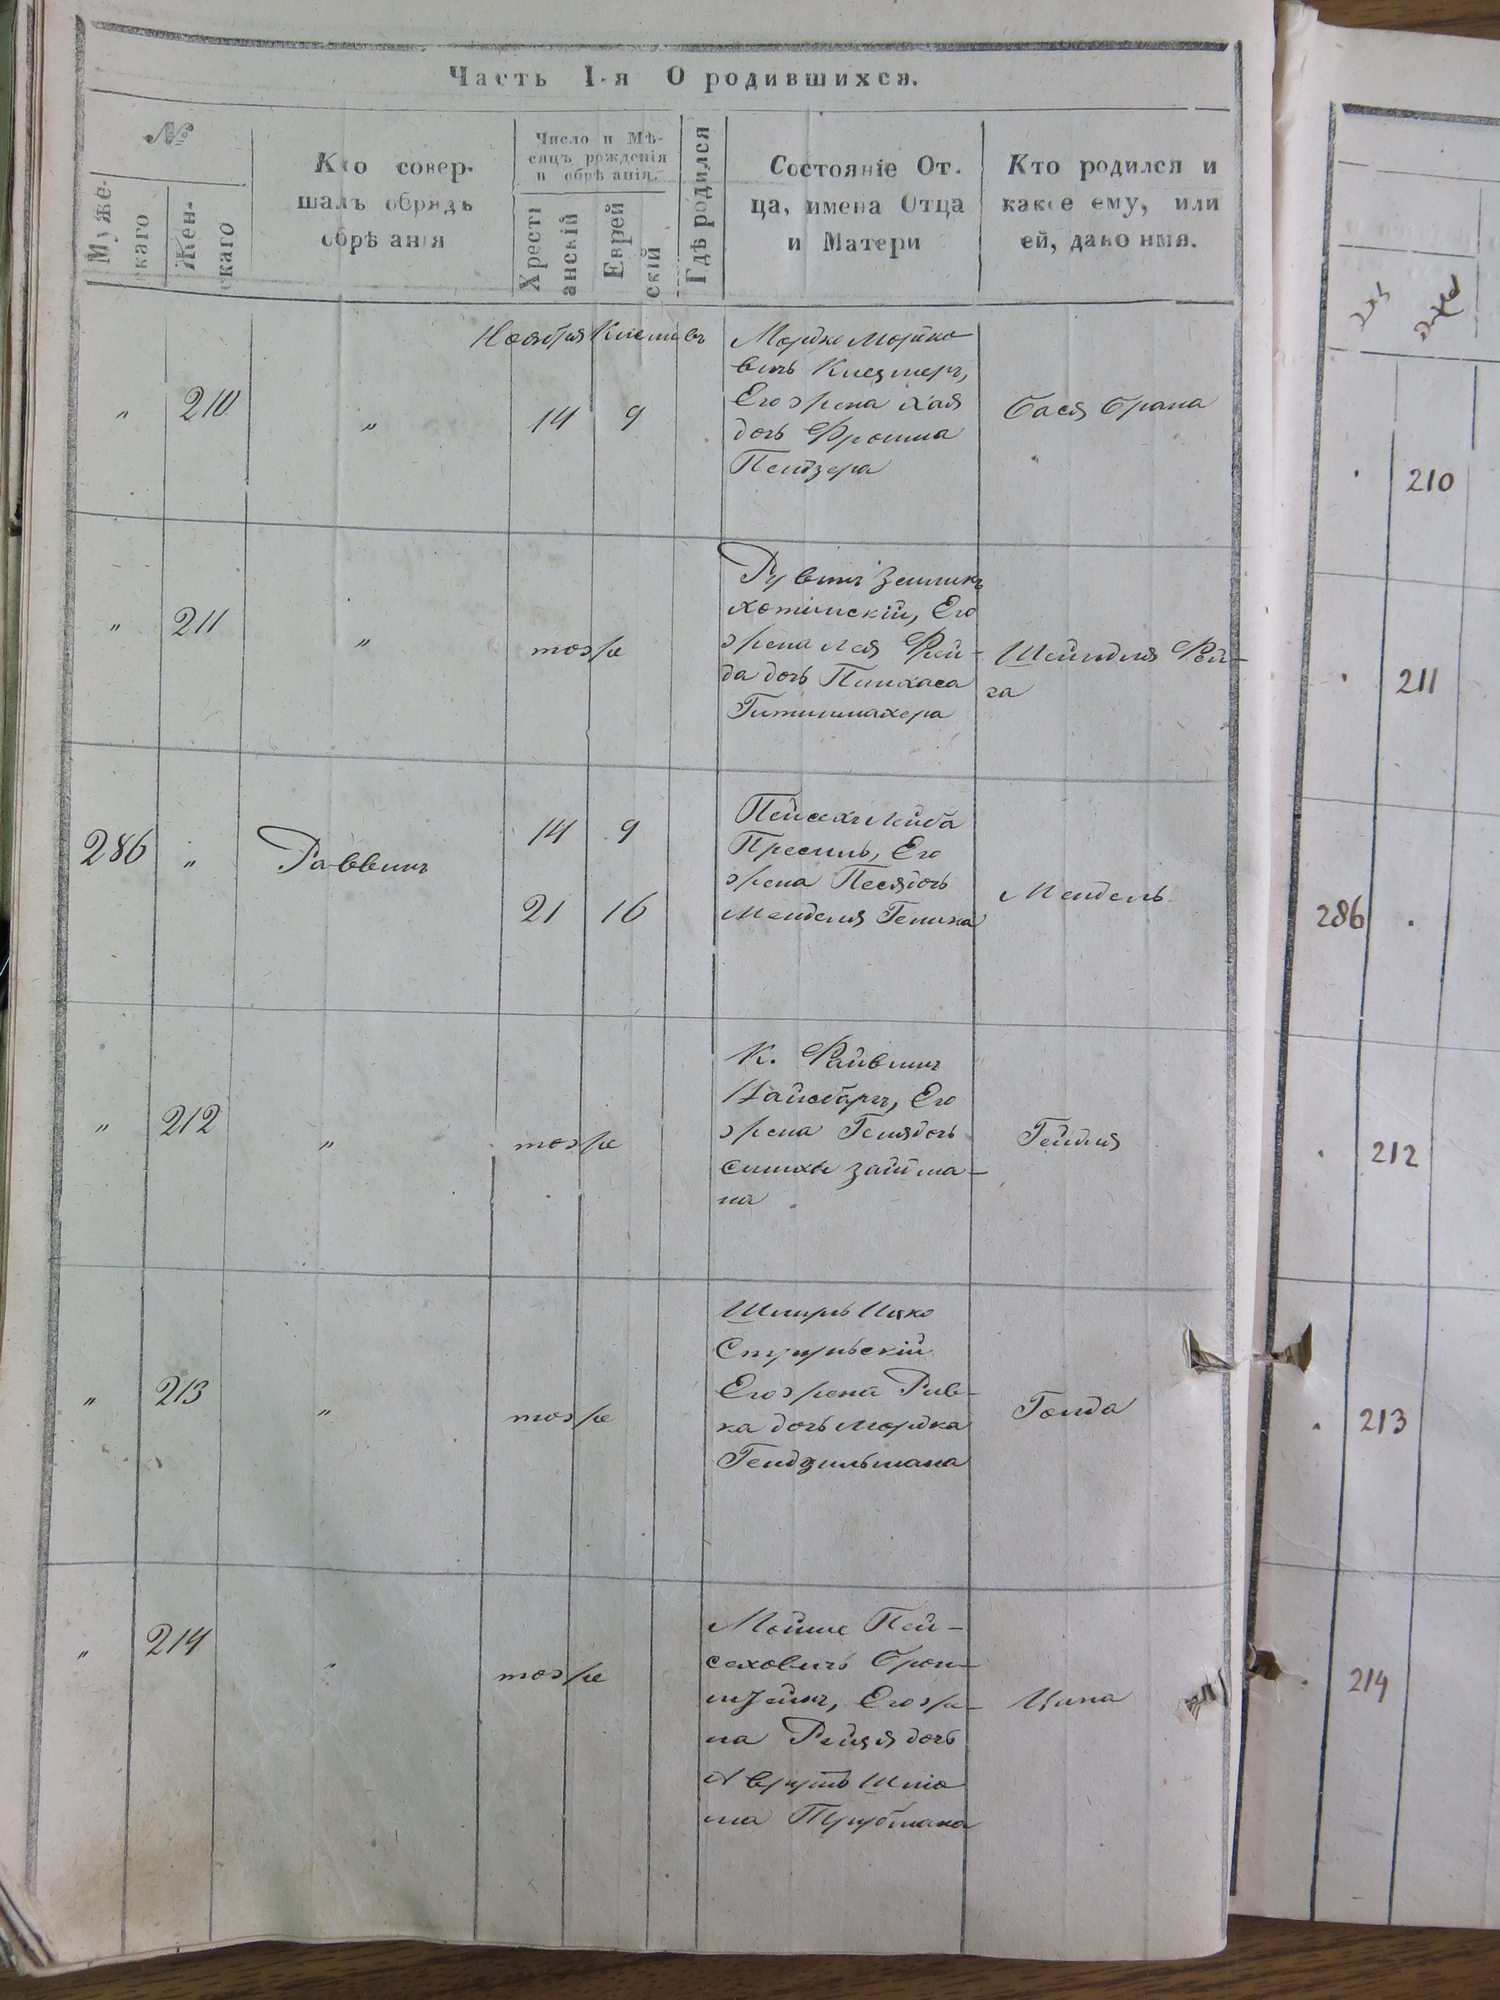 Часть I-я О родившихся.
№
Муже-
скаго
Жен-
скаго
Кто совер-
шалъ обрядъ
обрѣзанія
Число и Мѣ-
сяцъ рожденія
и обрѣзанія.
Христі
анскій
Еврей
скій
Гдѣ родился
Состояніе От-
ца, имена Отца
и Матери
Кто родился и
какое ему, или
ей, дано имя.
Ноября Кисливъ
" 210 " 14 9
Мордко Мортко
вичъ Клезмеръ,
Его жена Хая
дочь Фроима
Пендзера
Бася Брана
" 211 " тоже
Рувинъ Зелникъ
Хотимскій, Его
жена Лея Фей-
да дочь Пинхаса
Гитинмахера
Шейндля Фей-
га
286 " Раввинъ
14 9
21 16
Пейсахъ Лейба
Пресиль, Его
жена Песя дочь
Менделя Геника
Мендель
" 212 " тоже
К. Файвишъ
Вайсбургъ, Его
жена Геня дочь
Симхи Зайдма-
на
Гейтля
" 213 " тоже
Шмуль Ицко
Его жена Рив-
ка дочь Мордка
Гендзильмана
Голда
" 214 " тоже
Мойше Пей-
сеховичъ Брон-
штейнъ, Его же-
на Рейзя дочь
Аврумъ Шлио
ма Трубмана
Ципа
210
211
286
212
213
214